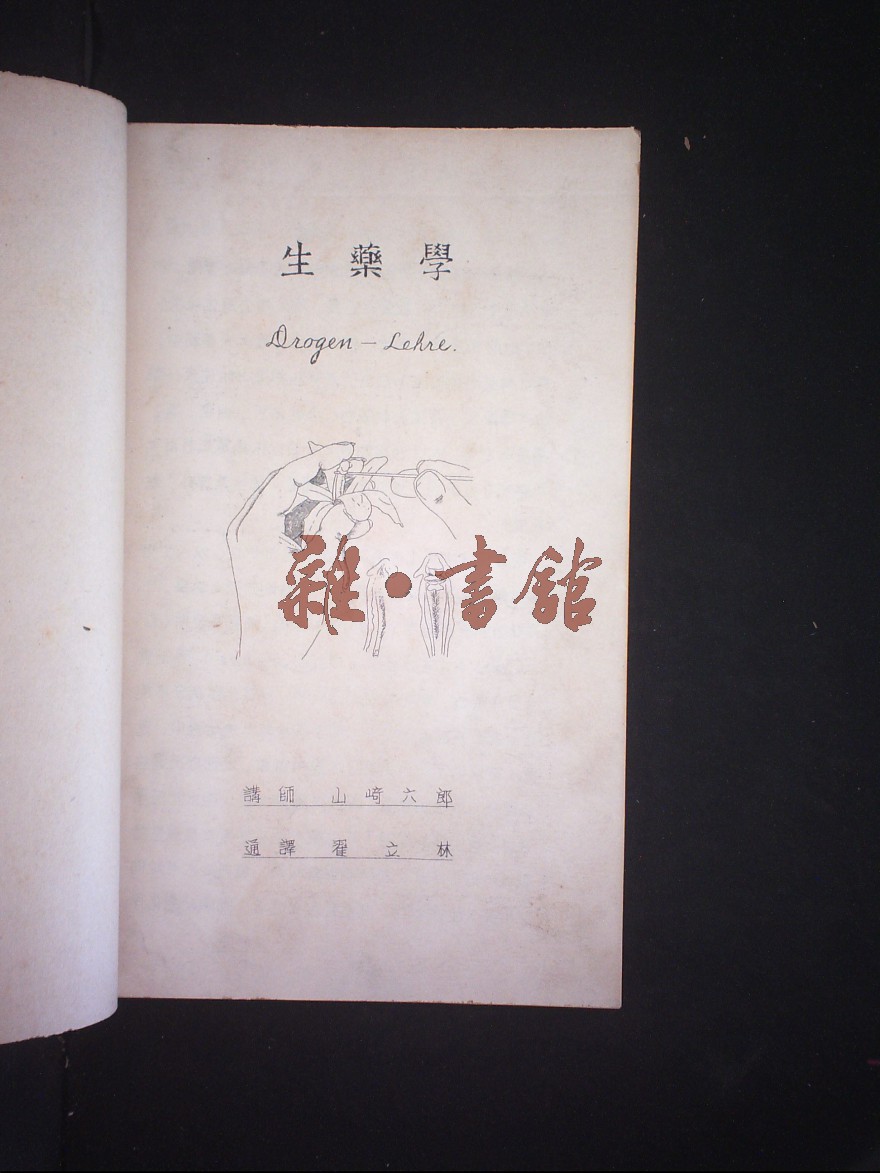 生藥學
Drogen - Lehre.
雜·書館
講師 山崎六郎
通譯 翟立林